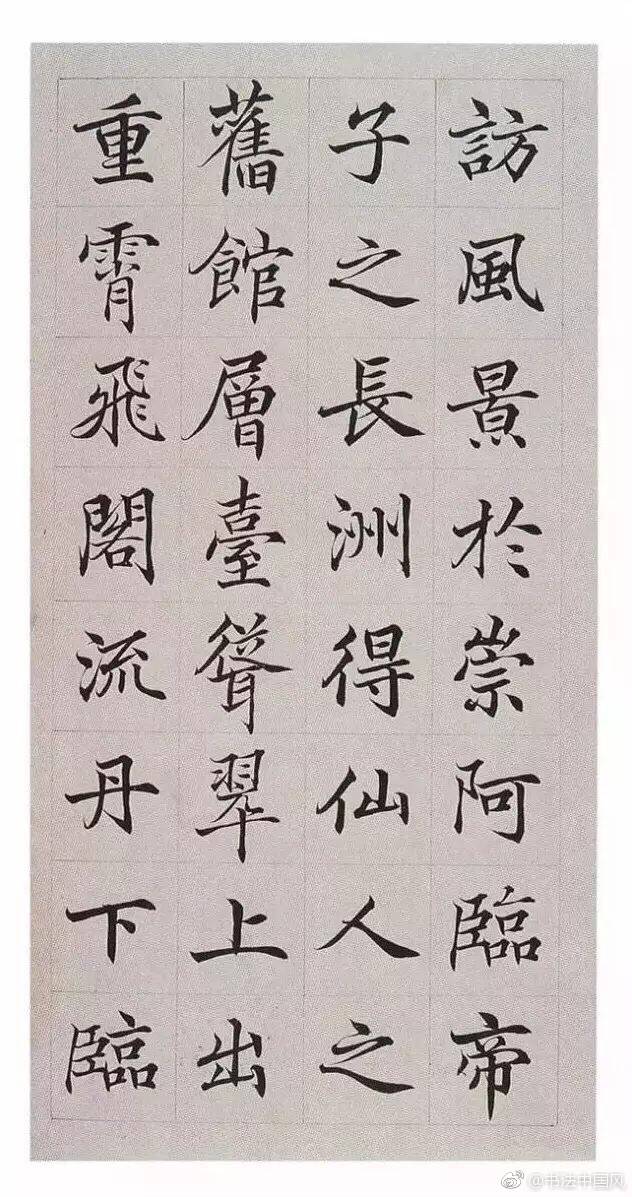 訪風景於崇阿臨帝
子之長洲得仙人之
舊館層臺聳翠上出
重霄飛閣流丹下臨
@书法中国风